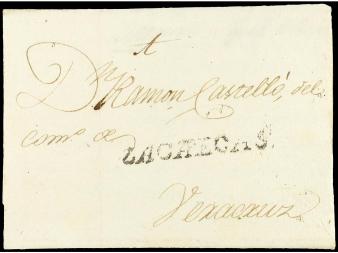 A
Dn. Ramon Castelló, del
como. de
ZACATECAS.
Veracruz